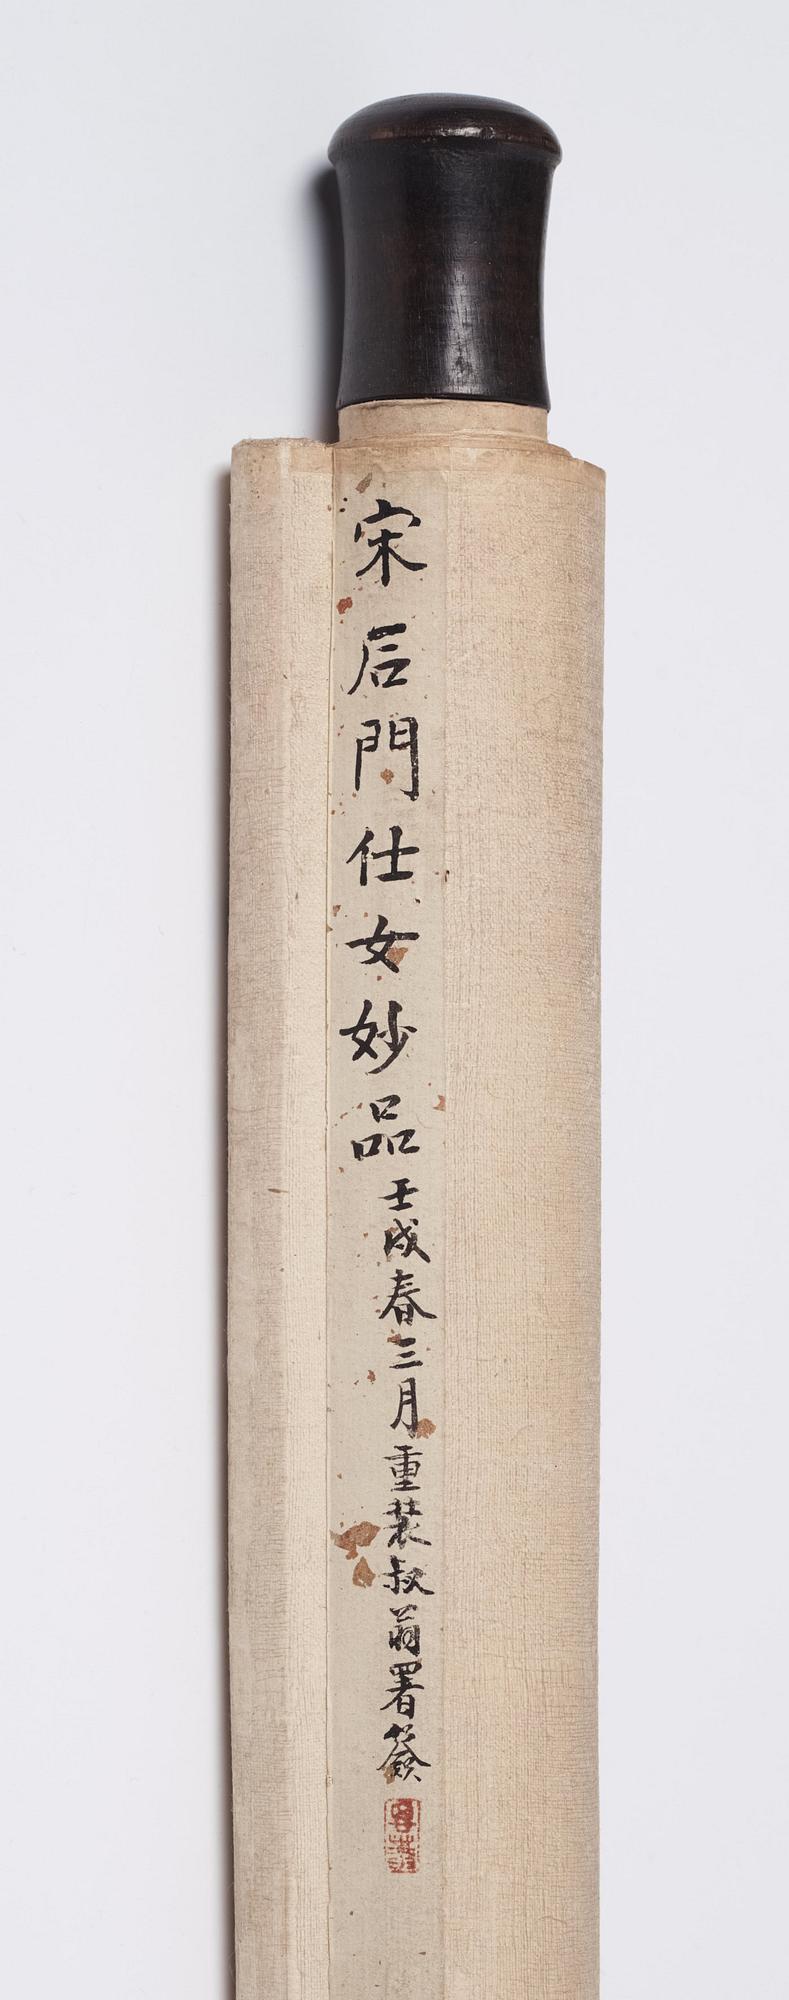 宋后門仕女妙品
壬戌春三月重裝叔翁署簽